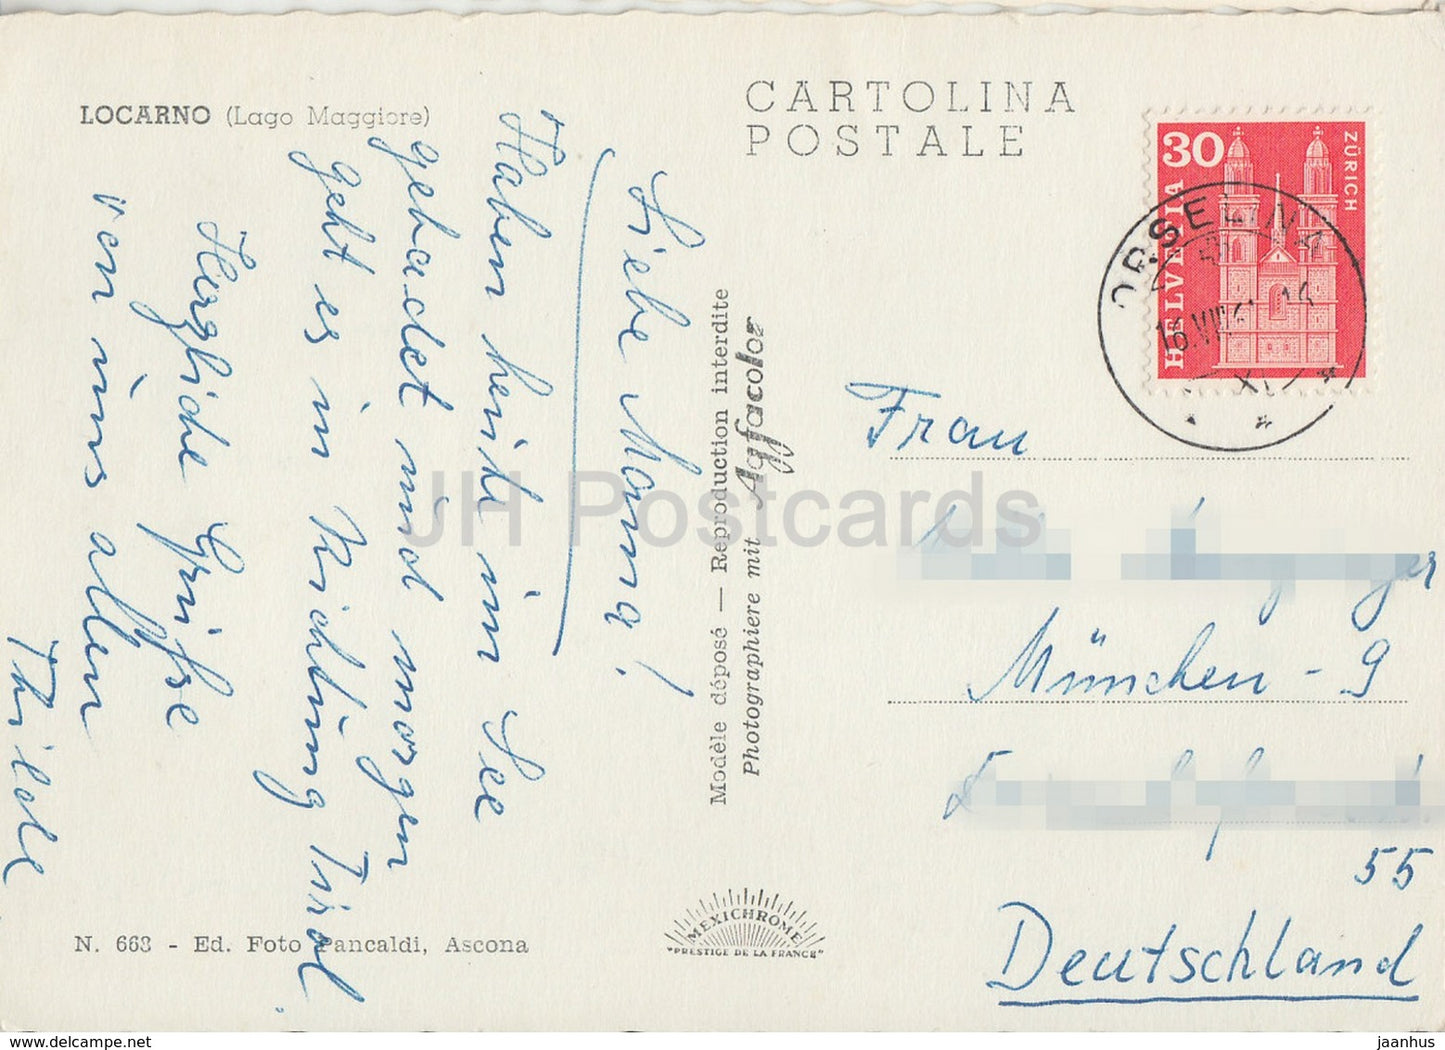 LOCARNO (Lago Maggiore)
CARTOLINA
POSTALE
30
HELVETIA
ZÜRICH
ORSELINA
Liebe Mama!
Haben heute im See
gebadet und morgen
geht es in Richtung Tirol.
Herzliche Grüße
von uns allen
Thilde
Modèle déposé — Reproduction interdite
Photographiere mit Agfacolor
Frau
München - 9
55
Deutschland
N. 663 - Ed. Foto Pancaldi, Ascona
MEXICHROME
"PRESTIGE DE LA FRANCE"
JH Postcards
www.delcampe.net
jaanhus